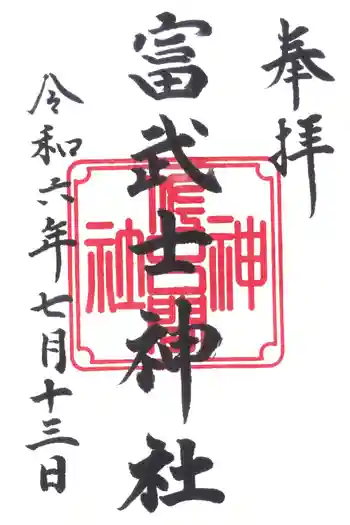 奉拝
富武士神社
令和六年七月十三日
神
社